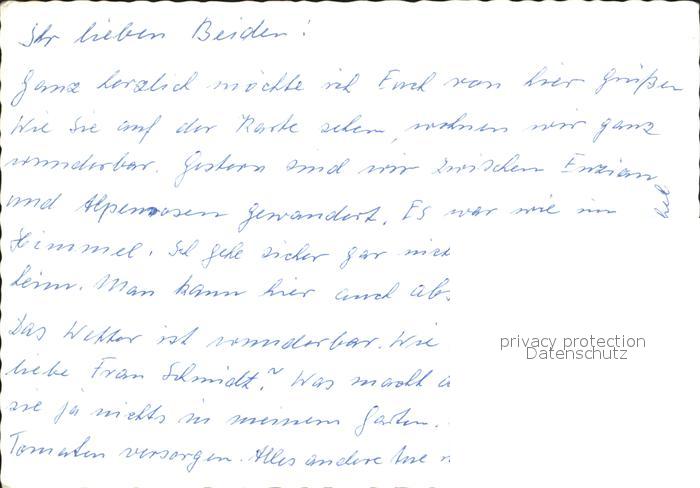 Ihr lieben Beiden!
Ganz herzlich möchte ich Euch von hier grüßen
Wie Sie auf der Karte sehen, wohnen wir ganz
wunderbar. Gestern sind wir zwischen Enzian
und Alpenrosen gewandert. Es war wie im
Himmel. Ich gehe sicher gar nicht
heim. Man kann hier auch abs
Das Wetter ist wunderbar. Wie
liebe Frau Schmidt? Was macht
sie ja nichts in meinem Garten.
Tomaten versorgen. Alles andere
privacy protection
Datenschutz